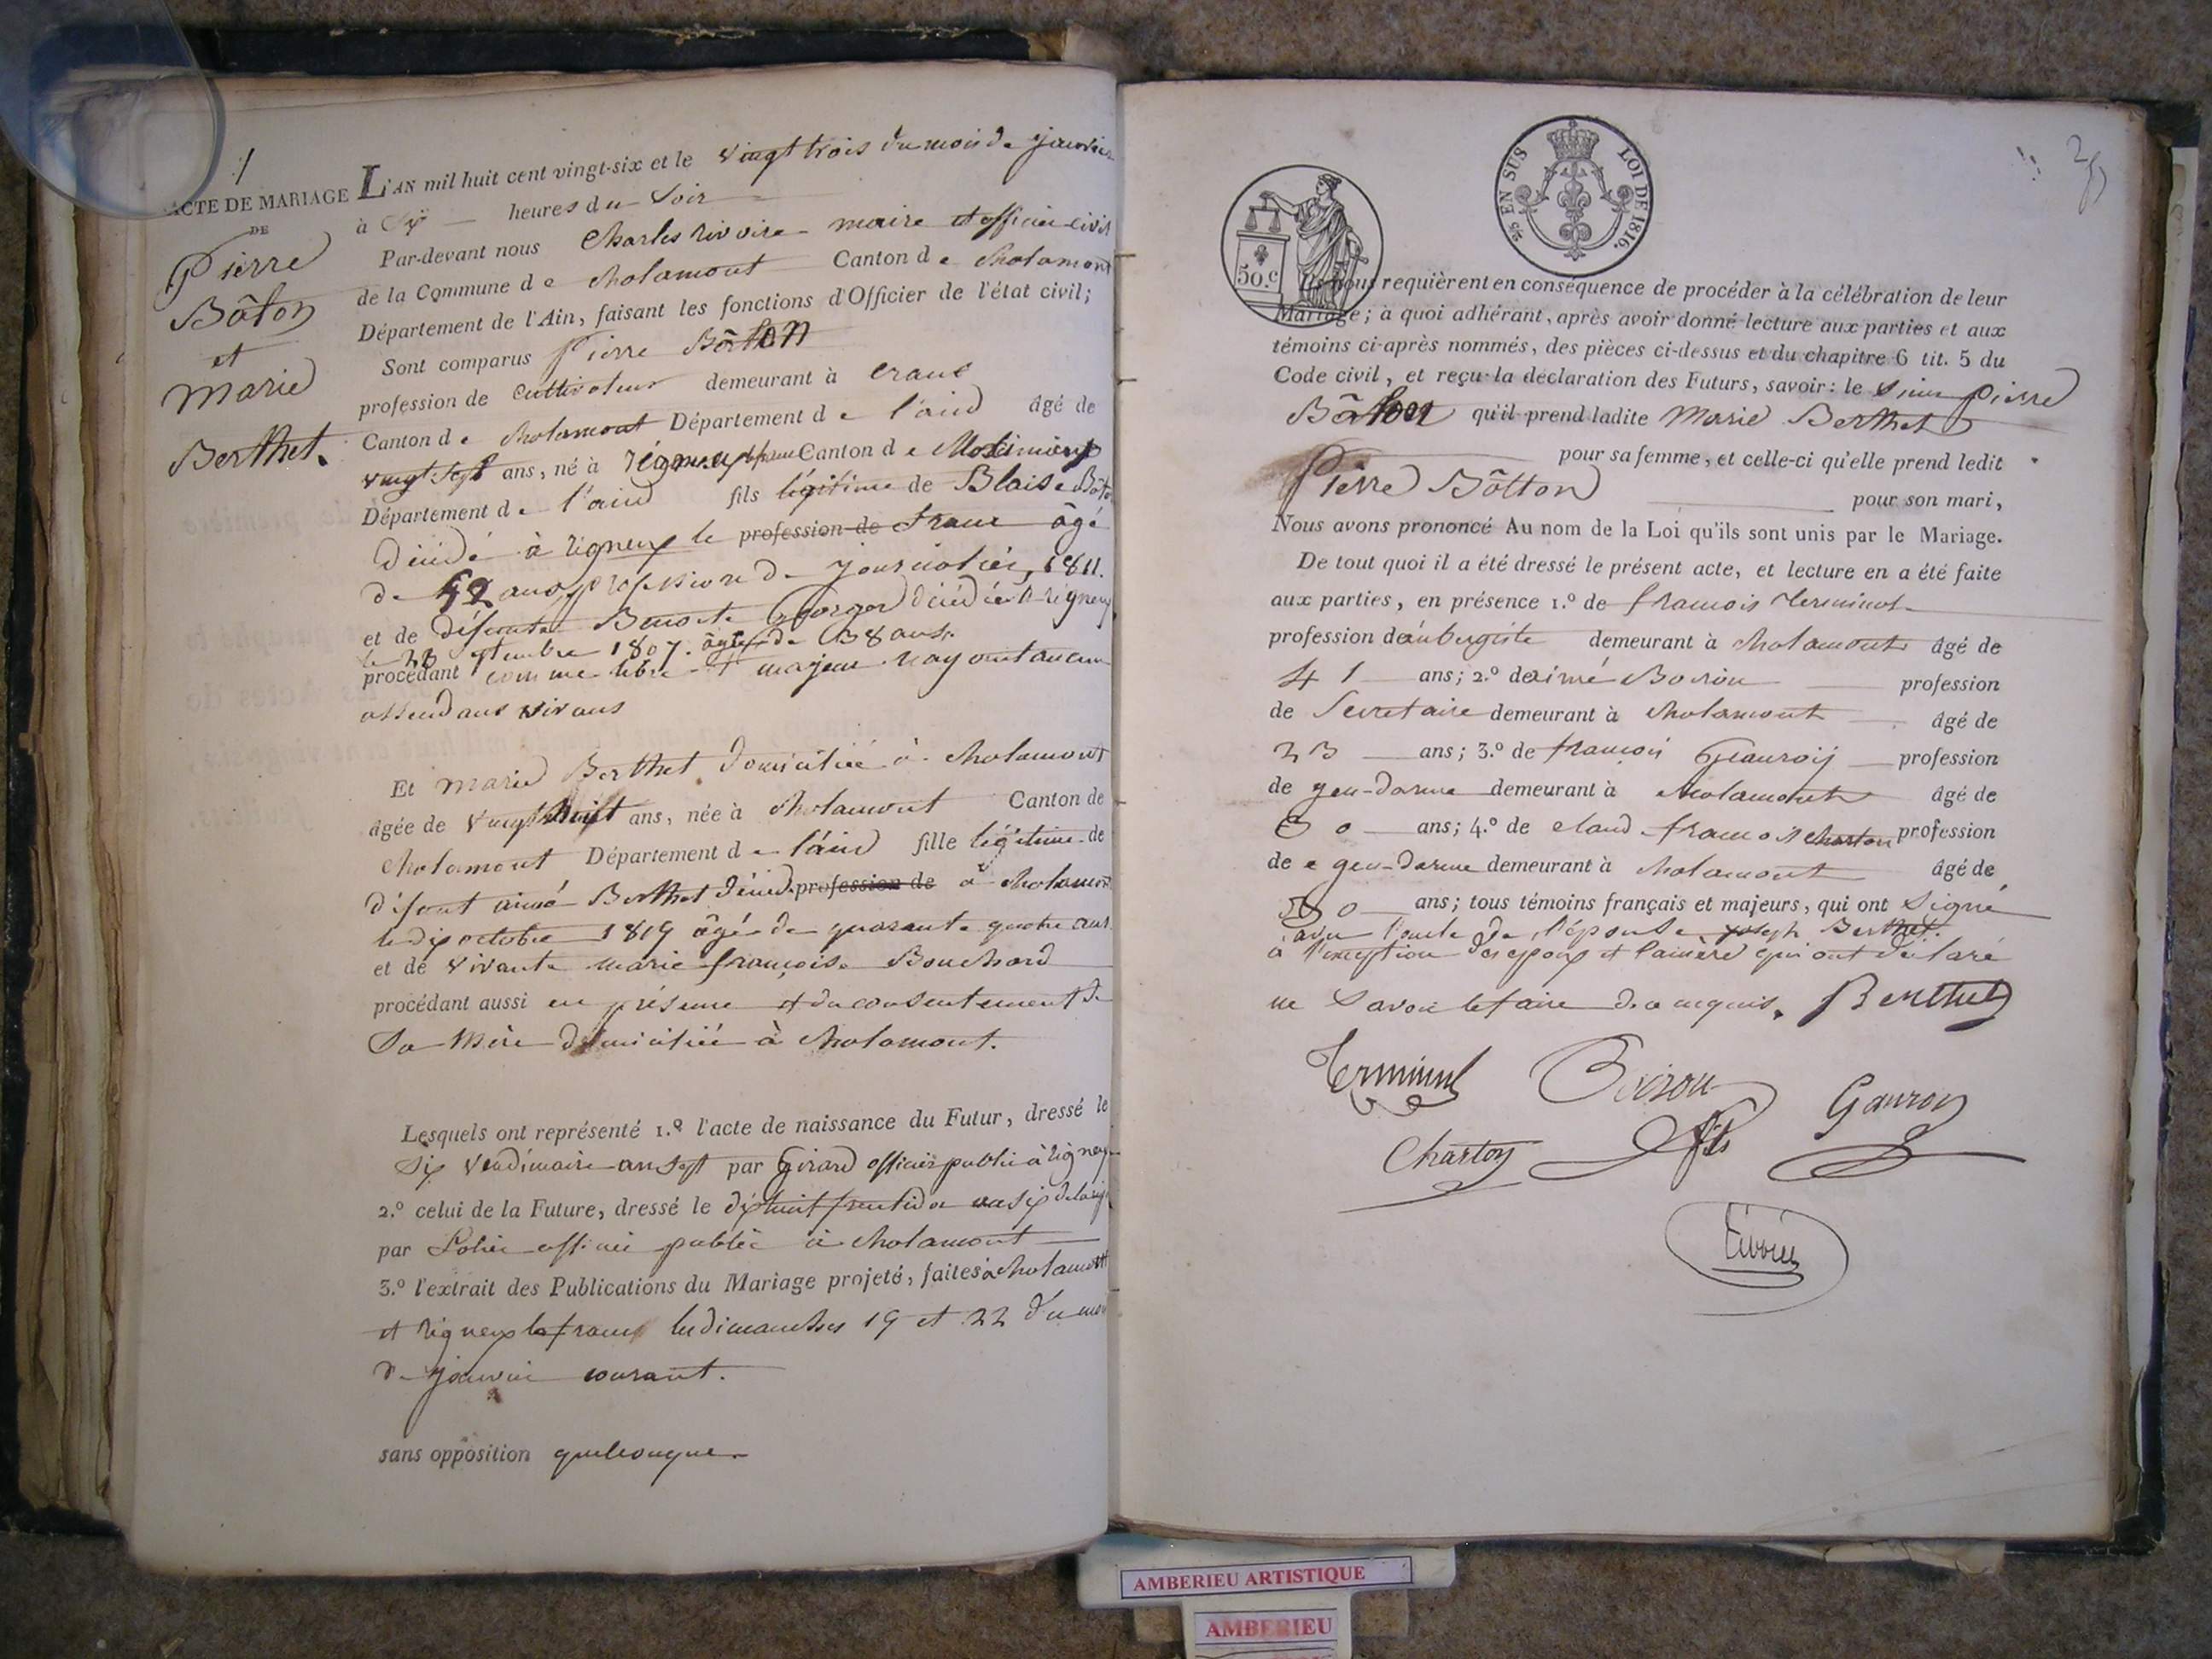 1
ACTE DE MARIAGE
DE
Pierre
Bâton
et
Marie
Berthet.
L'AN mil huit cent vingt-six et le vingt trois du mois de janvier
à Six heures du Soir
Par-devant nous Charles rivoire maire et officier civil
de la Commune de chalamont Canton de chalamont
Département de l'Ain, faisant les fonctions d'Officier de l'état civil;
Sont comparus Pierre Bâton
profession de cultivateur demeurant à crans
Canton de chalamont Département de l'aind âgé de
vingt sept ans, né à rigneux Canton de Meximieux
Département de l'aind fils légitime de Blaise Bâton
décédé à rigneux le profession de franc âgé
de 52 ans profession de journalier, 1811.
et de défunte Benoite Georges décédée à rigneux
le 23 septembre 1807. âgée de 38 ans.
procédant comme libre et majeur n'ayant aucun
assendans vivans
Et marie Berthet domiciliée à chalamont
âgée de vingt huit ans, née à chalamont Canton de
chalamont Département de l'aind fille légitime de
défunt aimé Berthet décédé profession de à chalamont
le dix octobre 1819 âgé de quarante quatre ans
et de vivante marie françoise Bouchard
procédant aussi en présence et du consentement de
Sa Mère domiciliée à chalamont.
Lesquels ont représenté 1.º l'acte de naissance du Futur, dressé le
Six vendimaire an sept par Girard officier public à rigneux
2.º celui de la Future, dressé le dix huit fructidor an six
par officier public à chalamont
3.º l'extrait des Publications du Mariage projeté, faites à chalamont
et rigneux le franc les dimanches 19 et 22 du mois
de janvier courant.
sans opposition quelconque
50 c.
2/5 EN SUS LOI DE 1816.
Ils nous requièrent en conséquence de procéder à la célébration de leur
Mariage; à quoi adhérant, après avoir donné lecture aux parties et aux
témoins ci-après nommés, des pièces ci-dessus et du chapitre 6 tit. 5 du
Code civil, et reçu la déclaration des Futurs, savoir: le sieur Pierre
Bâton qu'il prend ladite Marie Berthet
pour sa femme, et celle-ci qu'elle prend ledit
Pierre Bâtton pour son mari,
Nous avons prononcé Au nom de la Loi qu'ils sont unis par le Mariage.
De tout quoi il a été dressé le présent acte, et lecture en a été faite
aux parties, en présence 1.º de françois Terminet
profession de aubergiste demeurant à chalamont âgé de
41 ans; 2.º de aimé Boiron profession
de Secretaire demeurant à chalamont âgé de
23 ans; 3.º de françois Geauroij profession
de gen-darme demeurant à chalamont âgé de
30 ans; 4.º de claud françois charton profession
de gen-darme demeurant à chalamont âgé de
30 ans; tous témoins français et majeurs, qui ont signé
avec l'oncle de l'épouse joseph Berthet.
à l'exception des epoux et la mère qui ont déclaré
ne Savoir le faire de ce requis. Berthet
Terminet Boiron Gauroy
Charton fils
AMBERIEU ARTISTIQUE
AMBERIEU